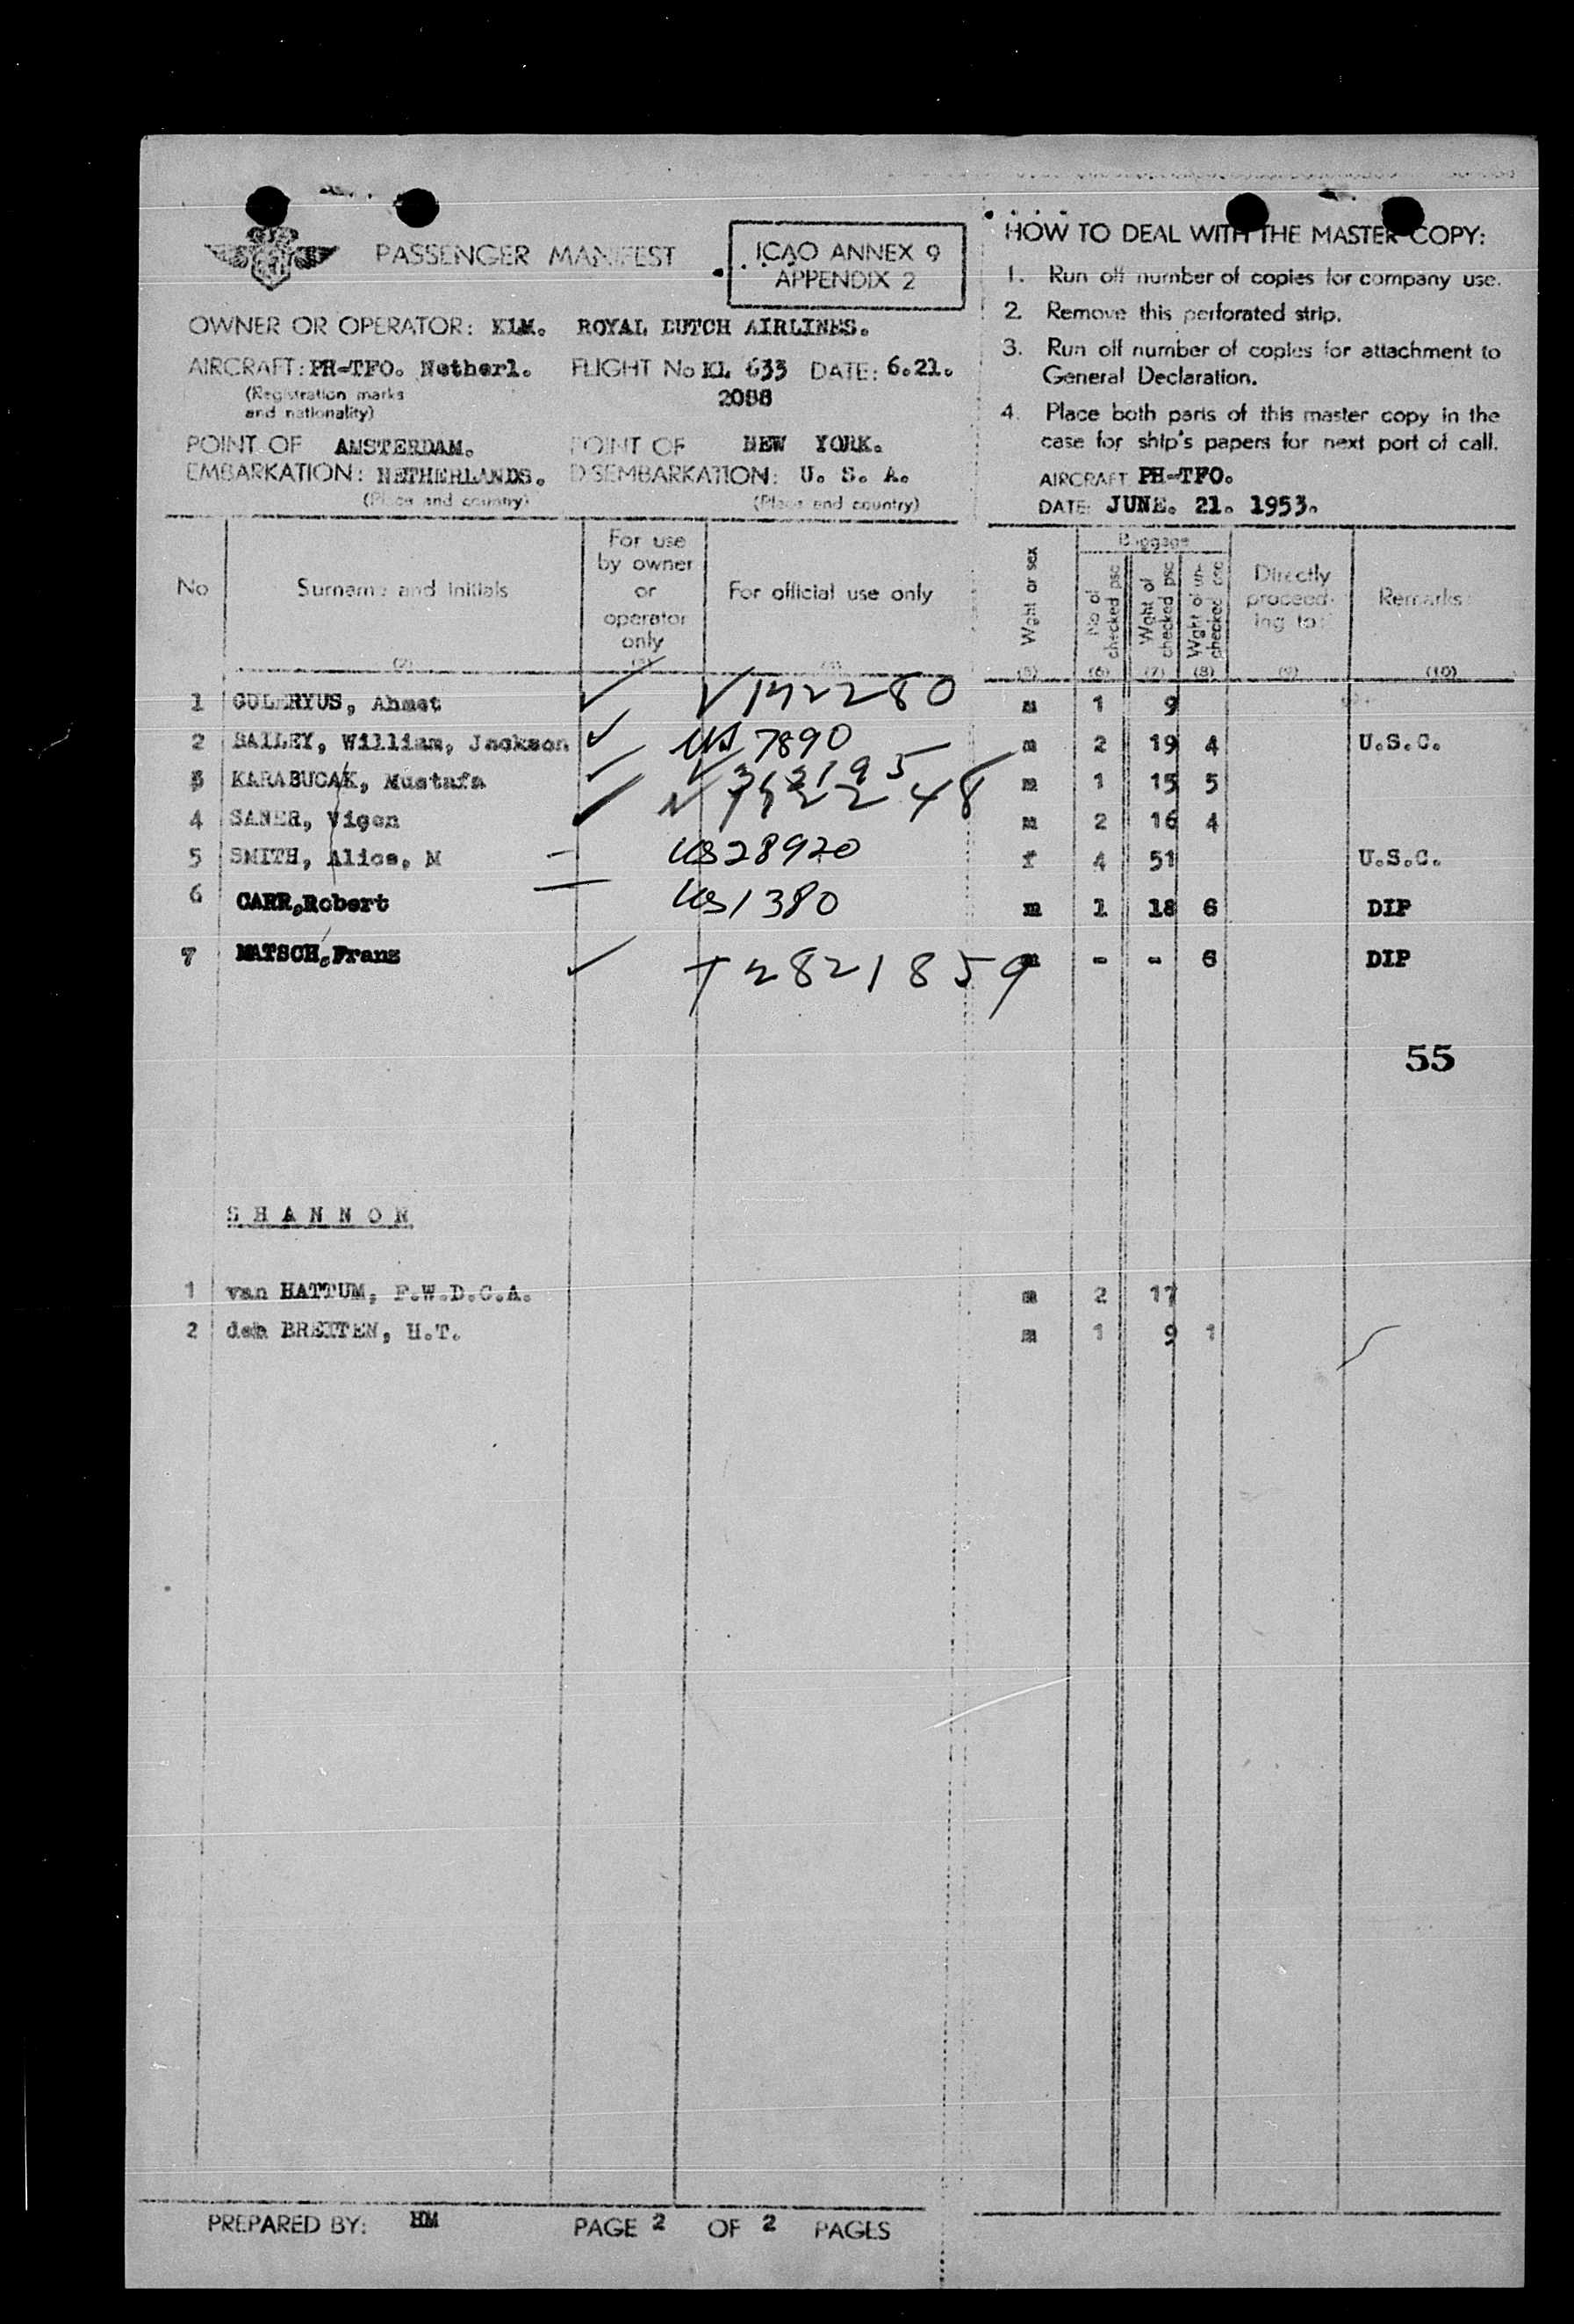 PASSENGER MANIFEST
ICAO ANNEX 9
APPENDIX 2
OWNER OR OPERATOR: KLM. ROYAL DUTCH AIRLINES.
AIRCRAFT: PH-TFO. Netherl. FLIGHT No KL 633 DATE: 6.21.
(Registration marks
and nationality)
2088
POINT OF AMSTERDAM. POINT OF NEW YORK.
EMBARKATION: NETHERLANDS. DISEMBARKATION: U. S. A.
(Place and country) (Place and country)
HOW TO DEAL WITH THE MASTER COPY:
1. Run off number of copies for company use.
2. Remove this perforated strip.
3. Run off number of copies for attachment to
General Declaration.
4. Place both parts of this master copy in the
case for ship's papers for next port of call.
AIRCRAFT PH-TFO.
DATE: JUNE. 21. 1953.
No
Surname and initials
(2)
For use
by owner
or
operator
only
(3)
For official use only
(4)
Wght or sex
(5)
Baggage
No of
checked psc
(6)
Wght of
checked psc
(7)
Wght of un-
checked psc
(8)
Directly
proceed-
ing to:
(9)
Remarks:
(10)
1 GULERYUS, Ahmet V 142280 m 1 9
2 BAILEY, William, Jackson US 7890 m 2 19 4 U.S.C.
3 KARABUCAK, Mustafa m 1 15 5
4 SANER, Vigen m 2 16 4
5 SMITH, Alice, M US 28920 f 4 51 U.S.C.
6 CARR, Robert US 1380 m 1 18 6 DIP
7 MATSCH, Franz T 2821859 m - - 6 DIP
55
SHANNON
1 van HATTUM, F.W.D.C.A. m 2 17
2 den BREITEN, H.T. m 1 9 1
PREPARED BY: HM PAGE 2 OF 2 PAGES